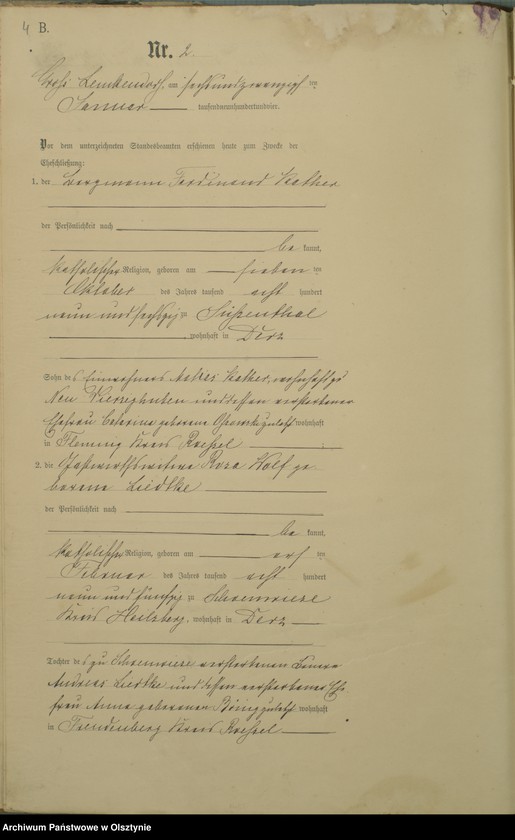 4 B.
Nr. 2.
Groß Lemkendorf, am sechsundzwanzigsten
Januar tausendneunhundertundvier.
Vor dem unterzeichneten Standesbeamten erschienen heute zum Zwecke der
Eheschließung:
1. der Bergmann Ferdinand Kather
der Persönlichkeit nach
be kannt,
katholischer Religion, geboren am sieben ten
Oktober des Jahres tausend acht hundert
neun und sechzig zu Süßenthal
, wohnhaft in Derz
Sohn des Einwohners Kather, wohnhaft zu
Neu Vierzighuben und dessen verstorbener
Ehefrau geborene zuletzt wohnhaft
in Fleming Kreis Roessel
2. die Gastwirthswitwe Rosa Wolf ge-
borene Liedtke
der Persönlichkeit nach
be kannt,
katholischer Religion, geboren am ten
Februar des Jahres tausend acht hundert
neun und fünfzig zu Schoenwiese
Kreis Heilsberg, wohnhaft in Derz
Tochter des zu Schoenwiese verstorbenen
Andreas Liedtke und dessen verstorbener Ehe-
frau Anna geborenen König zuletzt wohnhaft
in Freudenberg Kreis Roessel
Archiwum Państwowe w Olsztynie